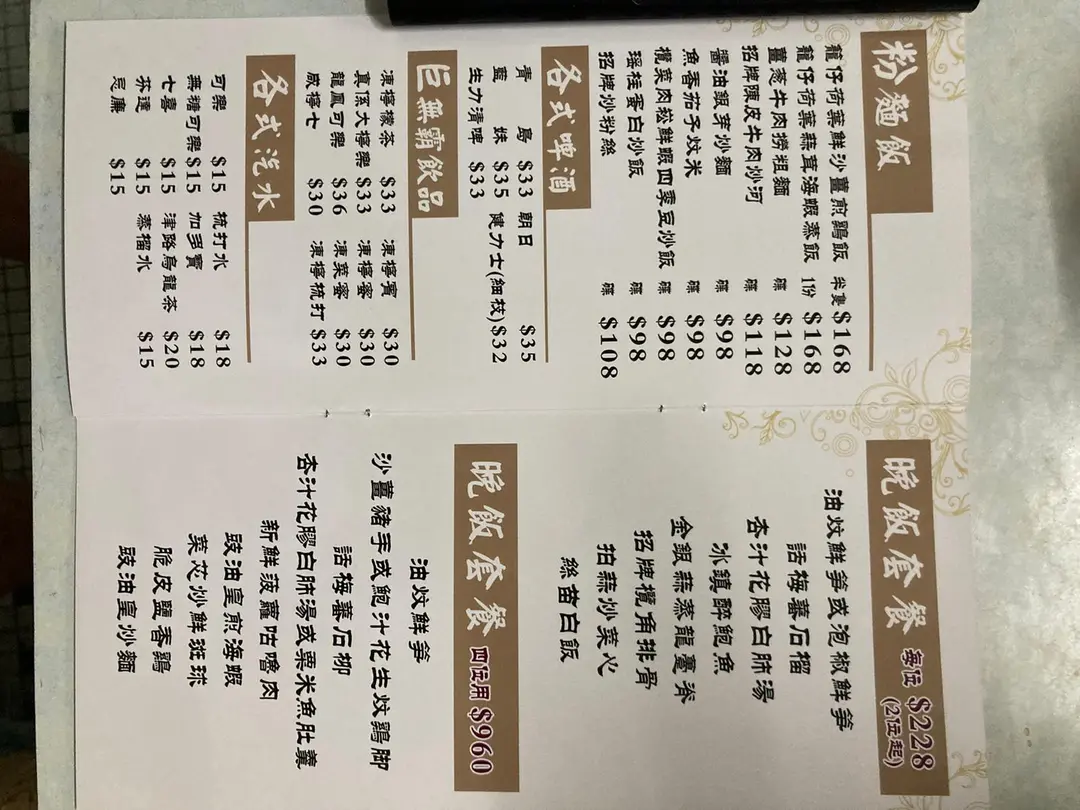 粉麵飯
籠仔荷葉鮮沙薑煎鷄飯 半隻 $168
籠仔荷葉蒜茸海蝦蒸飯 1份 $168
薑葱牛肉撈粗麵 碟 $128
招牌陳皮牛肉炒河 碟 $118
醬油銀芽炒麵 碟 $98
魚香茄子炆米 碟 $98
欖菜肉崧鮮蝦四季豆炒飯 碟 $98
瑤柱蛋白炒飯 碟 $98
招牌炒粉絲 碟 $108
各式啤酒
青島 $33 朝日 $35
藍妹 $35 健力士(細枝) $32
生力清啤 $33
巨無霸飲品
凍檸檬茶 $33 凍檸賓 $30
真係大檸樂 $33 凍檸蜜 $30
龍鳳可樂 $36 凍菜蜜 $30
咸檸七 $30 凍檸梳打 $33
各式汽水
可樂 $15 梳打水 $18
無糖可樂 $15 加多寶 $18
七喜 $15 津路烏龍茶 $20
芬達 $15 蒸餾水 $15
忌廉 $15
晚飯套餐 每位 $228
(2位起)
油炆鮮笋或泡椒鮮笋
話梅蕃石榴
杏汁花膠白肺湯
冰鎮醉鮑魚
金銀蒜蒸龍躉脊
招牌欖角排骨
拍蒜炒菜心
絲苗白飯
晚飯套餐 四位用 $960
油炆鮮笋
沙薑豬手或鮑汁花生炆鷄脚
話梅蕃石榴
杏汁花膠白肺湯或粟米魚肚羹
新鮮菠蘿咕嚕肉
豉油皇煎海蝦
菜芯炒鮮斑球
脆皮鹽香鷄
豉油皇炒麵